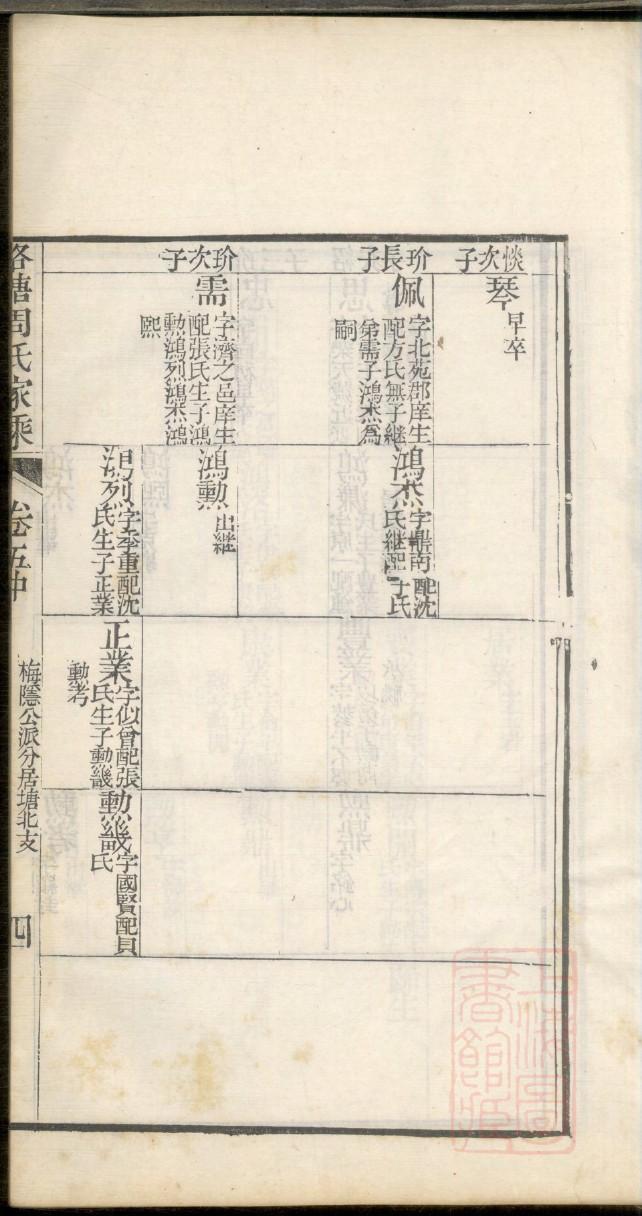 惔次子
琴
早卒
玠長子
佩
字北苑郡庠生
配方氏無子繼
弟需子鴻杰為
嗣
鴻杰
字鼎南配沈
氏繼配于氏
玠次子
需
字濟之邑庠生
配張氏生子鴻
勲鴻烈鴻杰鴻
熙
鴻勲
出繼
鴻烈
字季重配沈
氏生子正業
正業
字似曾配張
氏生子勲畿
勲考
勲畿
字國賢配貝
氏
洛塘周氏家乘
卷五中
梅隱公派分居塘北支
四
上海圖書館藏